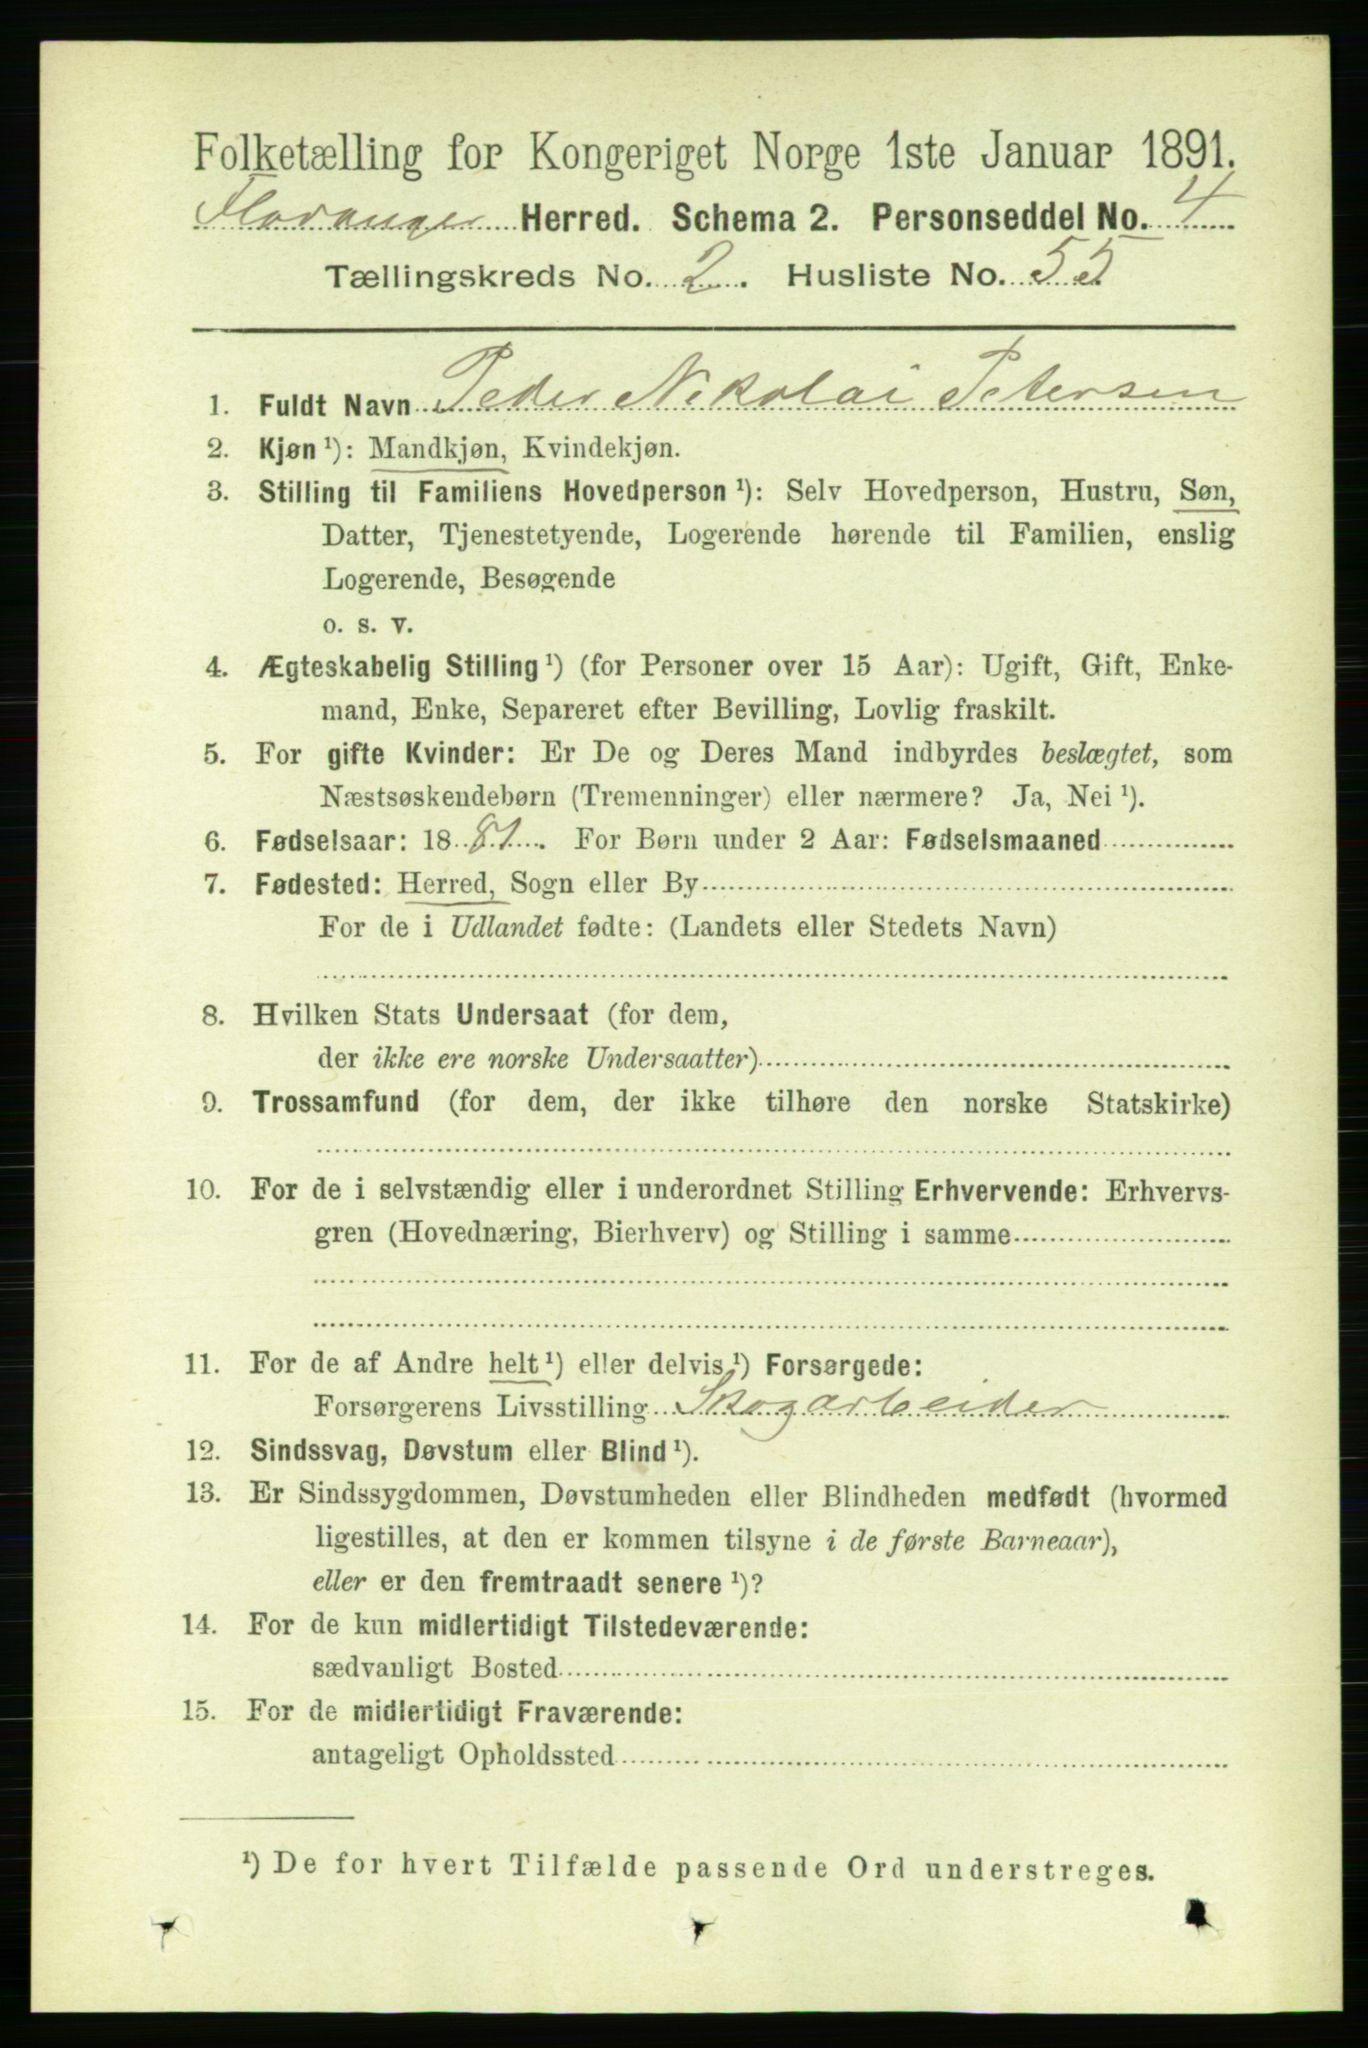 Folketælling for Kongeriget Norge 1ste Januar 1891.
Herred. Schema 2. Personseddel No. 4
Tællingskreds No. 2. Husliste No. 55
1. Fuldt Navn Peder Nikolai Petersen
2. Kjøn ¹): Mandkjøn, Kvindekjøn.
3. Stilling til Familiens Hovedperson ¹): Selv Hovedperson, Hustru, Søn,
Datter, Tjenestetyende, Logerende hørende til Familien, enslig
Logerende, Besøgende
o. s. v.
4. Ægteskabelig Stilling ¹) (for Personer over 15 Aar): Ugift, Gift, Enke-
mand, Enke, Separeret efter Bevilling, Lovlig fraskilt.
5. For gifte Kvinder: Er De og Deres Mand indbyrdes beslægtet, som
Næstsøskendebørn (Tremenninger) eller nærmere? Ja, Nei ¹).
6. Fødselsaar: 1881. For Børn under 2 Aar: Fødselsmaaned
7. Fødested: Herred, Sogn eller By
For de i Udlandet fødte: (Landets eller Stedets Navn)
8. Hvilken Stats Undersaat (for dem,
der ikke ere norske Undersaatter)
9. Trossamfund (for dem, der ikke tilhøre den norske Statskirke)
10. For de i selvstændig eller i underordnet Stilling Erhvervende: Erhvervs-
gren (Hovednæring, Bierhverv) og Stilling i samme
11. For de af Andre helt ¹) eller delvis ¹) Forsørgede:
Forsørgerens Livsstilling Skogarbeider
12. Sindssvag, Døvstum eller Blind ¹).
13. Er Sindssygdommen, Døvstumheden eller Blindheden medfødt (hvormed
ligestilles, at den er kommen tilsyne i de første Barneaar),
eller er den fremtraadt senere ¹)?
14. For de kun midlertidigt Tilstedeværende:
sædvanligt Bosted
15. For de midlertidigt Fraværende:
antageligt Opholdssted
¹) De for hvert Tilfælde passende Ord understreges.